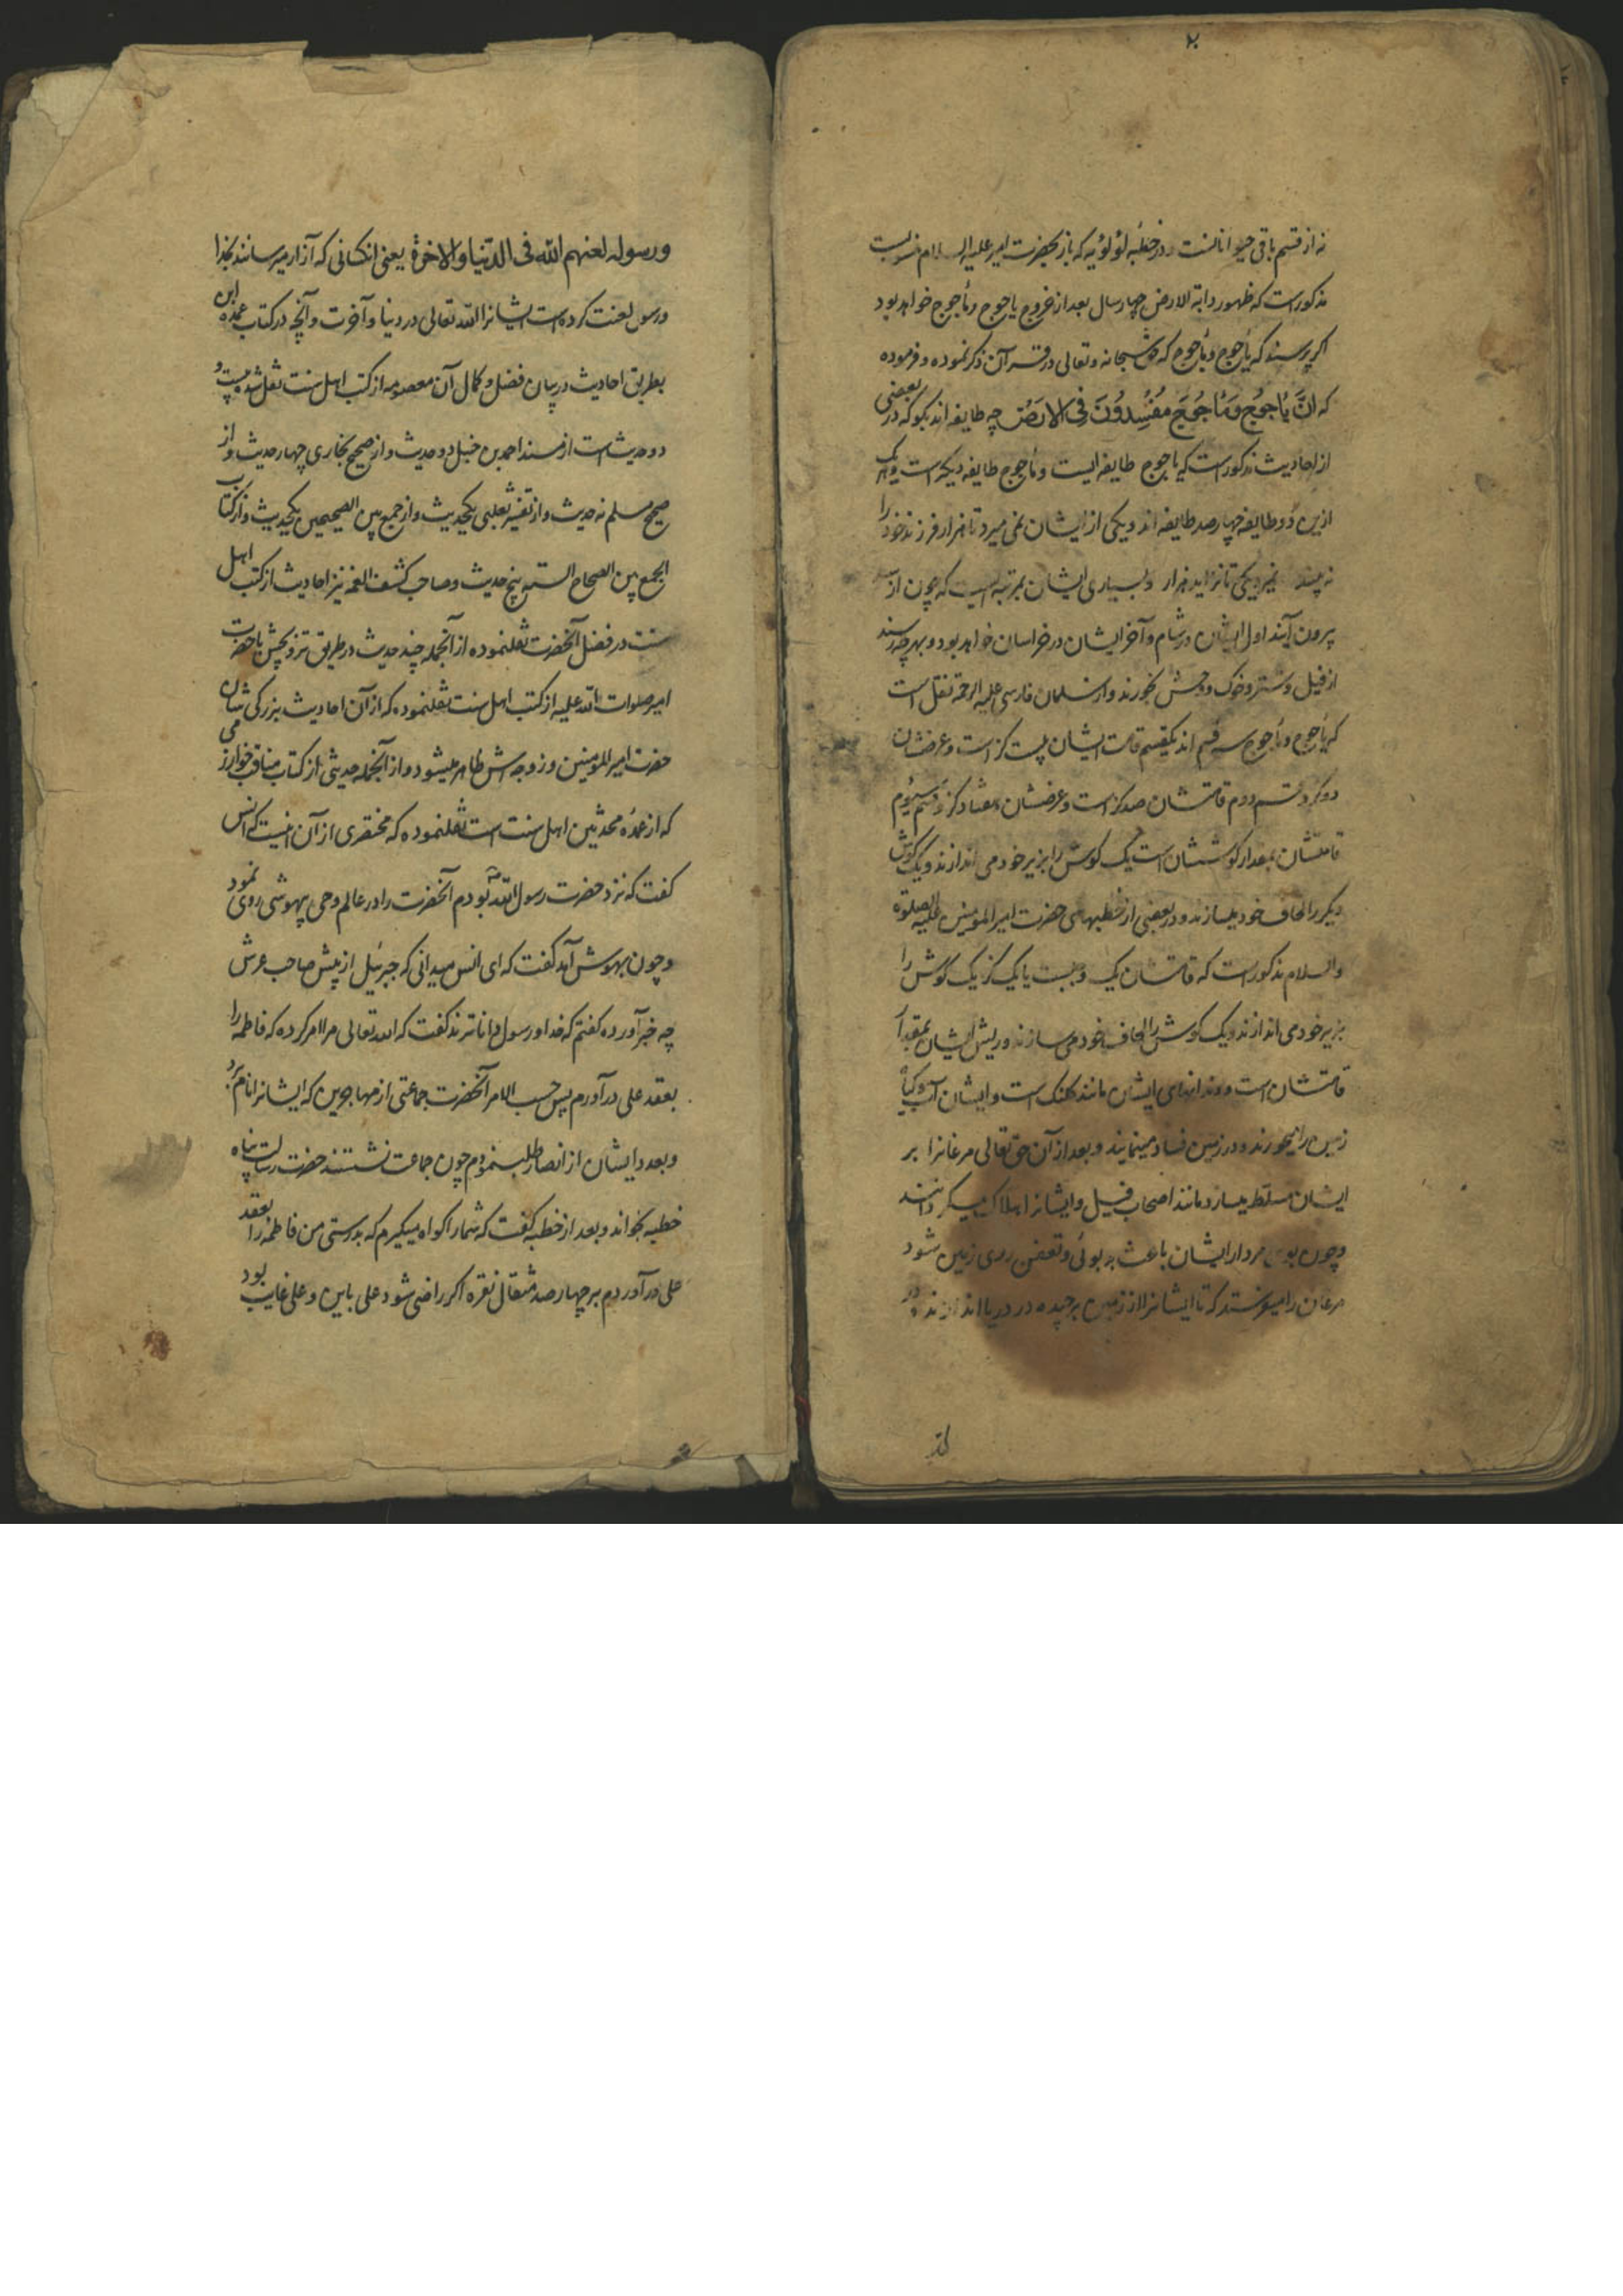 ٢
نه از قسم باقی حیوانانست و در خطبه لؤلؤیه که باز بحضرت امیر علیه السلام منسوبست
مذکورست که ظهور دابة الارض چهار سال بعد از خروج یاجوج و ماجوج خواهد بود
اکر پرسند که یأجوج و مأجوج که حق سبحانه وتعالی در قرآن ذکر نموده و فرموده
که انَّ یَأجوُجَ وَمَأجُوجَ مُفْسِدُونَ فِی الاَرَضِ چه طایفه اند بکو که در بعضی
از احادیث مذکور است که یاجوج طایفه ایست و مأجوج طایفه دیکر است و هر یک
ازین دو طایفه چهارصد طایفه اند و یکی از ایشان نمی میرد تا هزار فرزند خود را
نه بیند نمیرد یکی تا نزاید هزار و بسیاری ایشان بمرتبه ایست که چون از
بیرون آیند اول ایشان در شام و آخر ایشان در خراسان خواهد بود و بهر چه رسند
از فیل و شتر و خوک و وحش بخورند و از سلمان فارسی علیه الرحمة نقل است
که یأجوج و مأجوج سه قسم اند یکقسم قامت ایشان بیست کز است و عرضشان
دو کز و قسم دوم قامتشان صد کز است و عرضشان هفتاد کز و قسم سیوم
قامتشان بمقدار کوششان است یک کوش را بزیر خود می اندازند و یک کوش
دیکر را لحاف خود میسازند و در بعضی از خطبهای حضرت امیر المؤمنین علیه الصلوة
والسلام مذکور است که قامتشان یک وجبست یا یک کز یک کوش را
بزیر خود می اندازند و یک کوش را لحاف خود می سازند و ریش ایشان بمقدار
قامتشان است و دندانهای ایشان مانند کلنک است و ایشان آب و کیاه
زمین را میخورند و در زمین فساد مینمایند و بعد از آن حق تعالی مرغانرا بر
ایشان مسلط میسازد مانند اصحاب فیل و ایشانرا هلاک میکردانند
و چون بوی مردار ایشان باعث بدبوئی و تعفن روی زمین شود
مرغان را میفرستد که تا ایشانرا از زمین برچیده در دریا اندازند و در
ورسوله لعنهم الله فی الدنیا والاخرة یعنی آنکسانی که آزار میرسانند بخدا
ورسول لعنت کرده است ایشانرا الله تعالی در دنیا و آخرت و آنچه در کتاب عمده ابن
بطریق احادیث در بیان فضل و کمال آن معصومه از کتب اهل سنت نقل شده بیست و
دو حدیث است از مسند احمد بن حنبل دو حدیث و از صحیح بخاری چهار حدیث و از
صحیح مسلم نه حدیث و از تفسیر ثعلبی یکحدیث و از جمع بین الصحیحین یکحدیث و از کتاب
الجمع بین الصحاح الستة پنج حدیث و صاحب کشف الغمه نیز احادیث از کتب اهل
سنت در فضل آنحضرت نقلنموده از آنجمله چند حدیث در طریق تزویجش با حضرت
امیر صلوات الله علیه از کتب اهل سنت نقلنموده که از آن احادیث بزرکی شان
حضرت امیر المؤمنین و زوجه اش ظاهر میشود و از آنجمله حدیثی از کتاب مناقب خوارزمی
که از عمده محدثین اهل سنت است نقلنموده که مختصری از آن اینست که انس
کفت که نزد حضرت رسول الله بودم آنحضرت را در عالم وحی بیهوشی روی نمود
و چون بهوش آمد کفت که ای انس میدانی که جبرئیل از پیش صاحب عرش
چه خبر آورده کفتم که خدا و رسول داناترند کفت که الله تعالی مرا امر کرده که فاطمه را
بعقد علی درآورم پس حسب الامر آنحضرت جماعتی از مهاجرین که ایشانرا نام برد
و بعدد ایشان از انصار طلب نمودم چون جماعت نشستند حضرت رسالت پناه
خطبه بخواند و بعد از خطبه کفت که شما را کواه میکیرم که بدرستی من فاطمه را بعقد
علی درآوردم بر چهارصد مثقال نقره اکر راضی شود علی باین و علی غایب بود